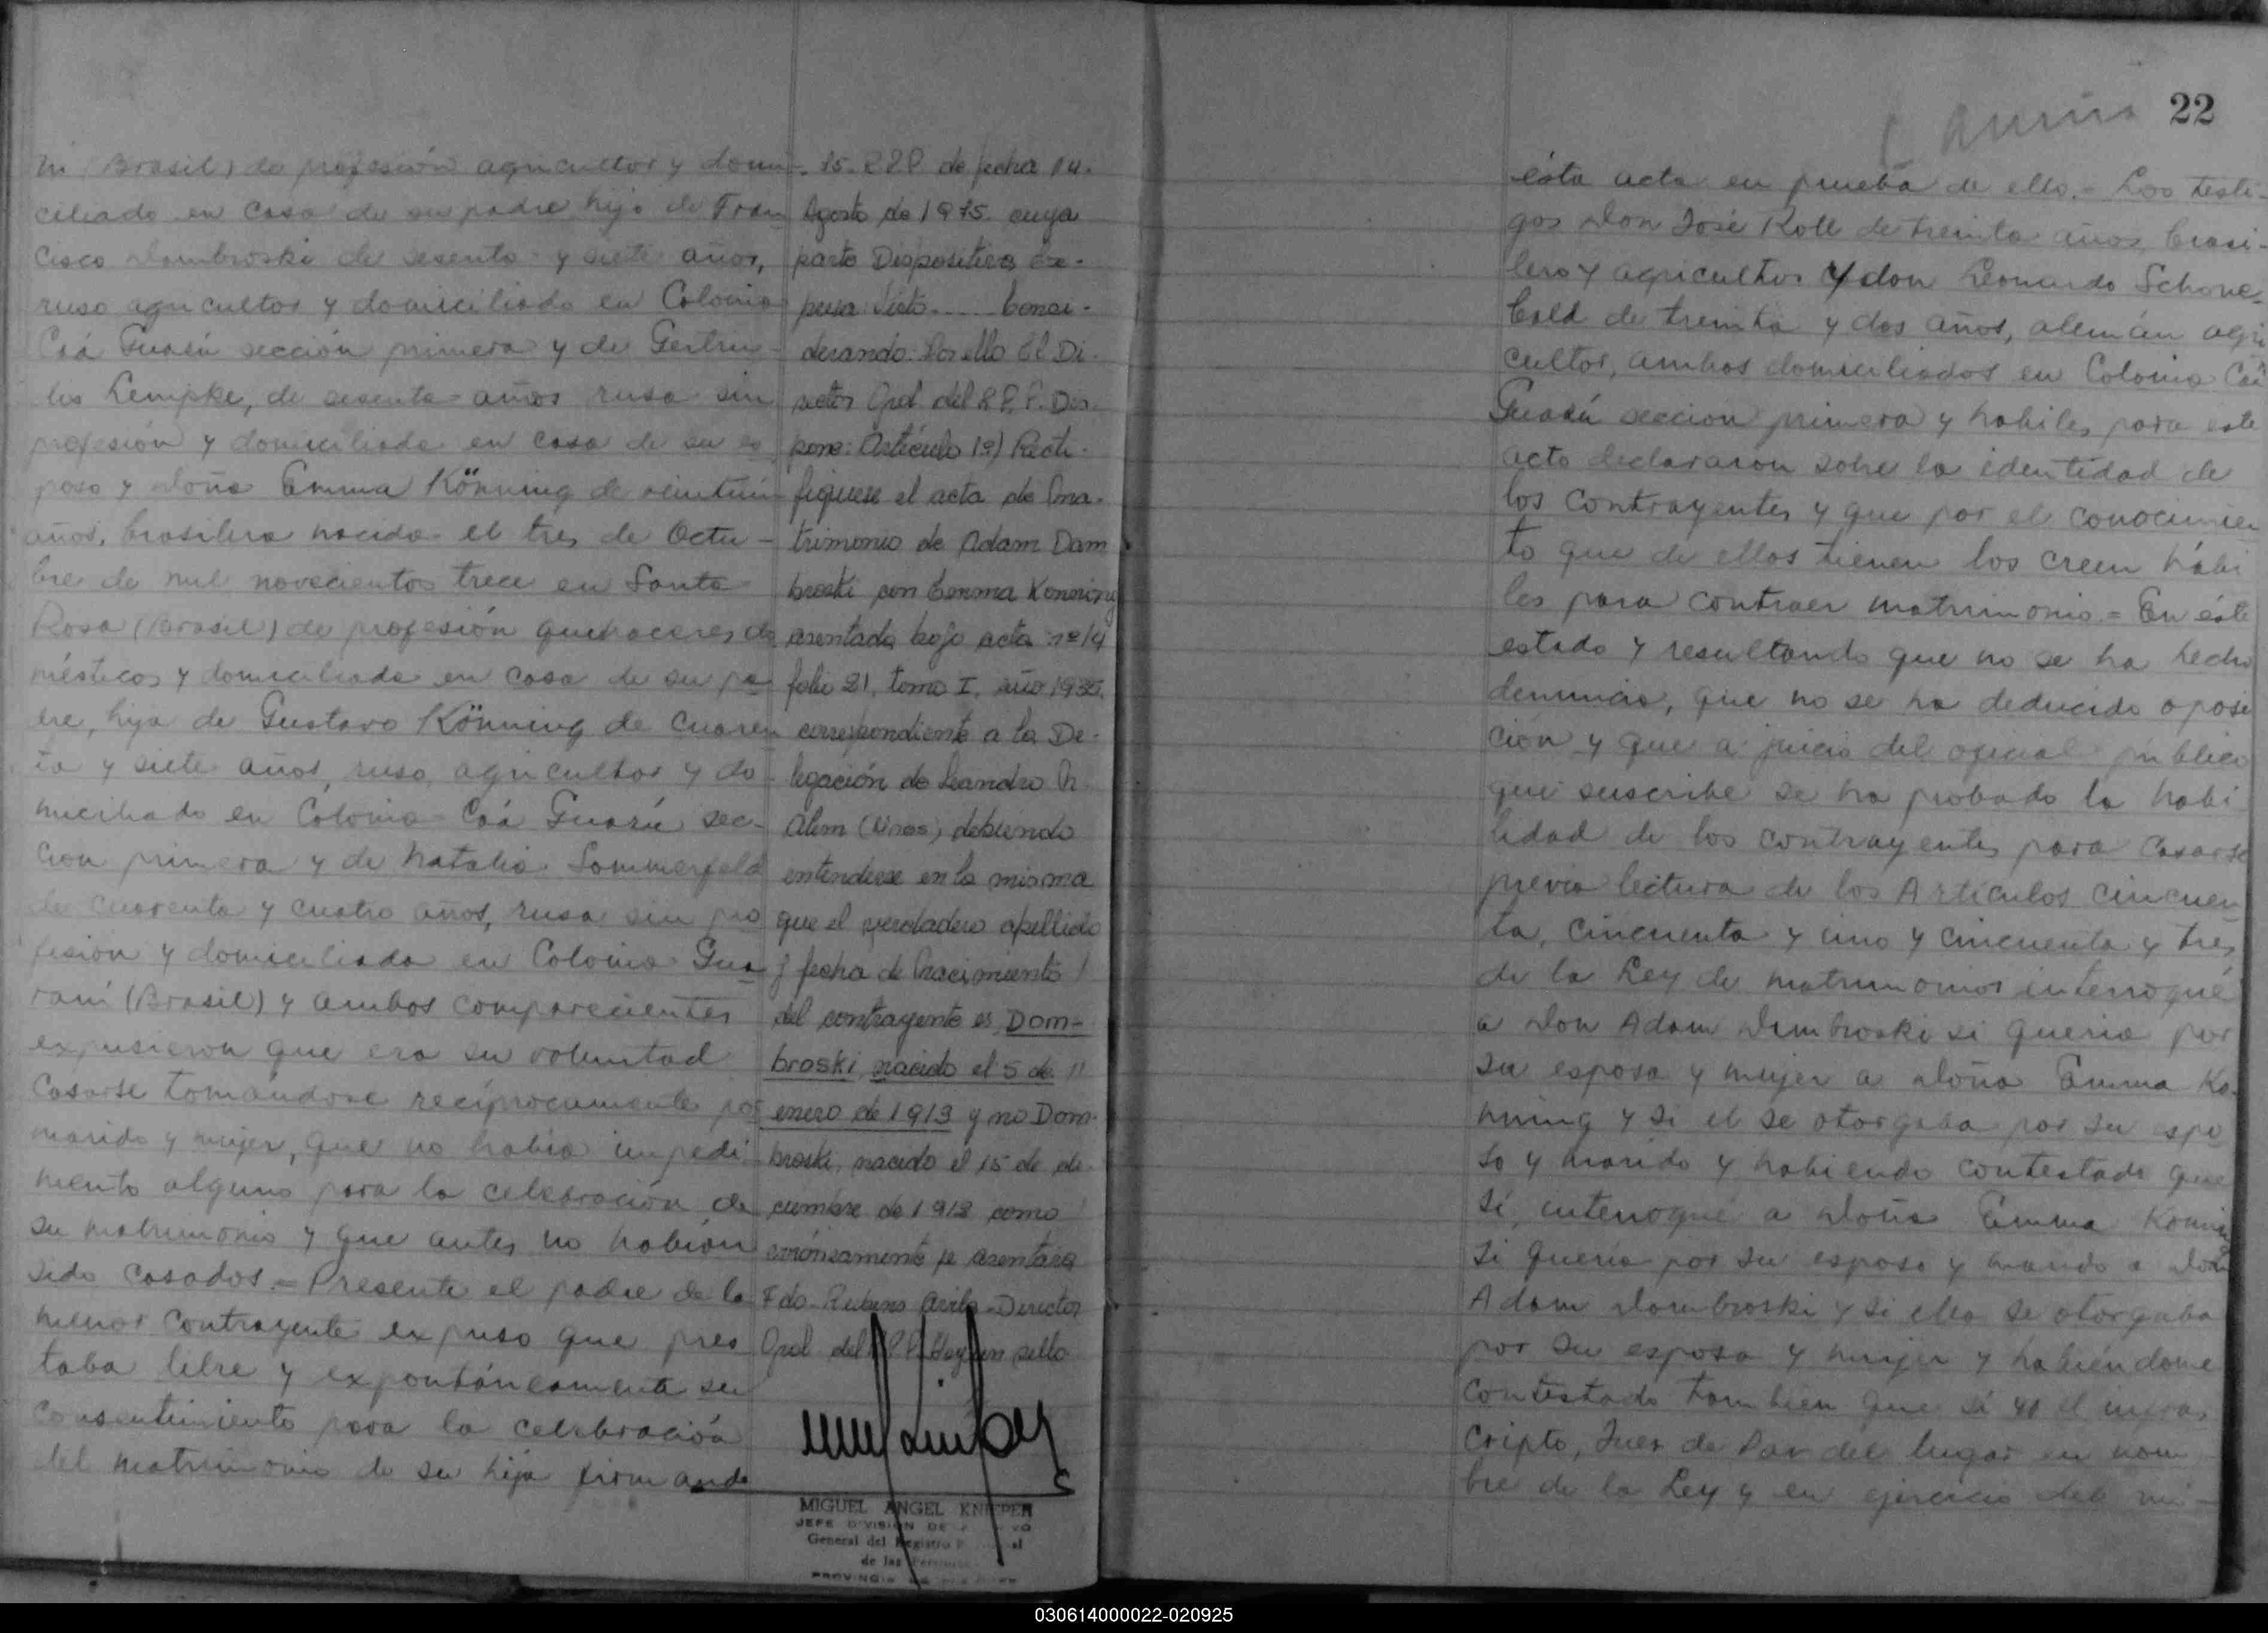 ni (Brasil) de profesión agricultor y domi-
ciliado en casa de su padre, hijo de Fran
cisco Dombroski de sesenta y siete años,
ruso agricultor y domiciliado en Colonia
Caá Guasú sección primera y de Gertru-
dis Lempke, de sesenta años rusa sin
profesión y domiciliada en casa de su es
poso y doña Emma Könning de veintiún
años, brasilera nacida el tres de Octu-
bre de mil novecientos trece en Santa
Rosa (Brasil) de profesión quehaceres do
mésticos y domiciliada en casa de su pa
dre, hija de Gustavo Könning de cuaren
ta y siete años, ruso, agricultor y do-
miciliado en Colonia Caá Guasú sec-
cion primera y de Natalia Sommerfeld
de cuarenta y cuatro años, rusa sin pro
fesión y domiciliada en Colonia Gua
raní (Brasil) y ambos comparecientes
expusieron que era su voluntad
casarse tomándose recíprocamente por
marido y mujer, que no había impedi
mento alguno para la celebración de
su matrimonio y que antes no habían
sido casados.= Presente el padre de la
menor contrayente expuso que pres
taba libre y expontáneamente su
consentimiento para la celebración
del matrimonio de su hija firmando
15. RPP de fecha 14.
Agosto de 1975. cuya
parte Dispositiva ex-
presa: Visto..... Consi-
derando: Por ello El Di-
rector Gral. del R.P.P. Dis-
pone: Artículo 1º) Recti-
fíquese el acta de ma-
trimonio de Adam Dam
broski con Emma Konning
asentada bajo acta nº 14
folio 21, tomo I, año 1935,
correspondiente a la De-
legación de Leandro N.
Alem (Mnes), debiendo
entenderse en la misma
que el verdadero apellido
y fecha de nacimiento
del contrayente es Dom-
broski, nacido el 5 de
enero de 1913 y no Dam-
broski, nacido el 15 de di-
ciembre de 1912 como
erróneamente se asentara
Fdo. Rubens Avila - Director
Gral. del RPP. Hay un sello
MIGUEL ANGEL KNIEPER
JEFE DIVISION DE
General del Registro
de las
PROVINCIA DE
22
ésta acta en prueba de ello.- Los testi-
gos don José Roll de treinta años, brasi-
lero y agricultor y don Leonardo Schone-
bald de treinta y dos años, alemán agri
cultor, ambos domiciliados en Colonia Caá
Guasú seccion primera y habiles para este
acto declararon sobre la identidad de
los contrayentes y que por el conocimien
to que de ellos tienen los creen hábi
les para contraer matrimonio.= En éste
estado y resultando que no se ha hecho
denuncia, que no se ha deducido oposi
ción y que a juicio del oficial público
que suscribe se ha probado la habi
lidad de los contrayentes para casarse
previa lectura de los Artículos cincuen
ta, cincuenta y uno y cincuenta y tres
de la Ley de matrimonios interrogué
a don Adam Dombroski si queria por
su esposa y mujer a doña Emma Ko-
nning y si el se otorgaba por su espo
so y marido y habiendo contestado que
si, interrogué a doña Emma Konning
si quería por su esposo y marido a don
Adam Dombroski y si ella se otorgaba
por su esposa y mujer y habiéndome
contestado tambien que si yo el infras
cripto, Juez de Paz del lugar en nom
bre de la Ley y en ejercicio del mi-
030614000022-020925